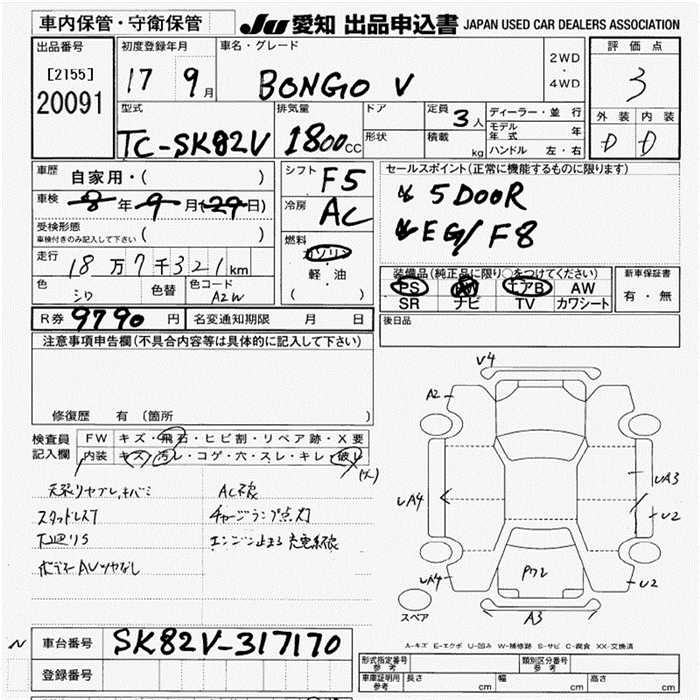 車内保管・守衛保管
JU 愛知 出品申込書 JAPAN USED CAR DEALERS ASSOCIATION
出品番号
[2155]
20091
初度登録年月
17 9月
車名・グレード
BONGO V
2WD
・
4WD
評価点
3
外装 内装
D D
型式
TC-SK82V
排気量
1800cc
ドア
形状
定員 3人
積載 kg
ディーラー・並行
モデル年式 年
ハンドル 左・右
車歴
自家用・( )
車検
8年9月(29日)
受検形態
車検付きのみ記入して下さい ( )
走行
18万7千321km
色
シロ
色替
色コード
A2W
シフト F5
冷房 AC
燃料
ガソリン
・
軽・油
( )
セールスポイント(正常に機能するものに限ります)
5DOOR
EG/F8
装備品(純正品に限り○をつけてください)
PS PW エアB AW
SR ナビ TV カワシート
新車保証書
有・無
R券 9790円
名変通知期限 月 日
後日品
注意事項申告欄(不具合内容等は具体的に記入して下さい)
修復歴 有 (箇所 )
検査員
記入欄
FW キズ・飛石・ヒビ割・リペア跡・X要
内装 キズ・汚レ・コゲ・穴・スレ・キレ・破レ
天張りヤブレ,キバミ
スタッドレス7
下廻りS
ボデーAUツヤなし
AC不良
チャージランプ点灯
エンジン止まる 充電不良
V4
A2
UA4
UA3
U2
P72
UA4
U2
A3
スペア
A-キズ E-エクボ U-凹み W-補修跡 S-サビ C-腐食 XX-交換済
N
車台番号 SK82V-317170
登録番号
形式指定番号
参考
類別区分番号
参考
車庫証明用
参考
長さ cm
幅 cm
高さ cm